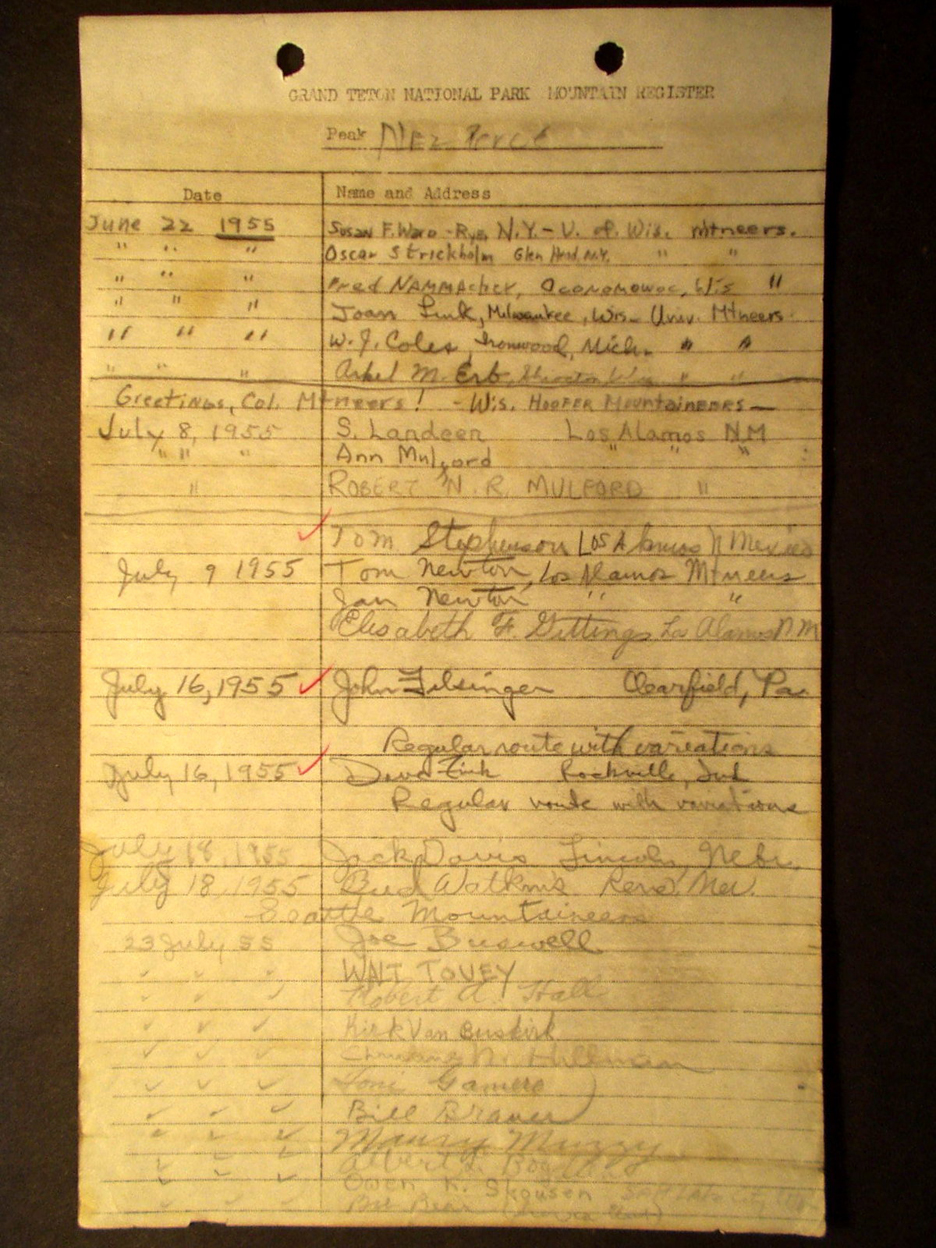 GRAND TETON NATIONAL PARK MOUNTAIN REGISTER
Peak Nez Perce
Date Name and Address
June 22 1955 Susan F. Ward - Rye, N.Y. - U. of. Wis. mtneers.
" " " Oscar Strickholm Glen Head, N.Y. " "
" " " Fred NAMMACHER, OCONOMOWOC, Wis "
" " " Joan Link, Milwaukee, Wis - Univ. Mtneers
" " " W. J. Coles, Ironwood, Mich. " "
" " " M. Erb, " "
Greetings, Col. Mtneers! - Wis. HOOFER MOUNTAINEERS -
July 8, 1955 S. Landeen Los Alamos NM
" " " Ann Mulford " " "
" ROBERT N. R. MULFORD "
Tom Stephenson Los Alamos N Mexico
July 9 1955 Tom Newton, Los Alamos Mtneers
Jan Newton, " "
Elisabeth F. Gittings Los Alamos NM
July 16, 1955 John Filsinger Clearfield, Pa.
Regular route with variations
July 16, 1955 Dave Zink Rockville, Ind
Regular route with variations
July 18, 1955 Jack Davis Lincoln, Nebr.
July 18, 1955 Bud Watkins Reno, Nev.
Seattle Mountaineers
23 July 55 Joe Buswell
WALT TOVEY
Robert A. Hall
Kirk Van Buskirk
N. Hillman
Toni Gamero
Bill Braver
Muzzy
Albert
Owen K. Skousen Salt Lake City